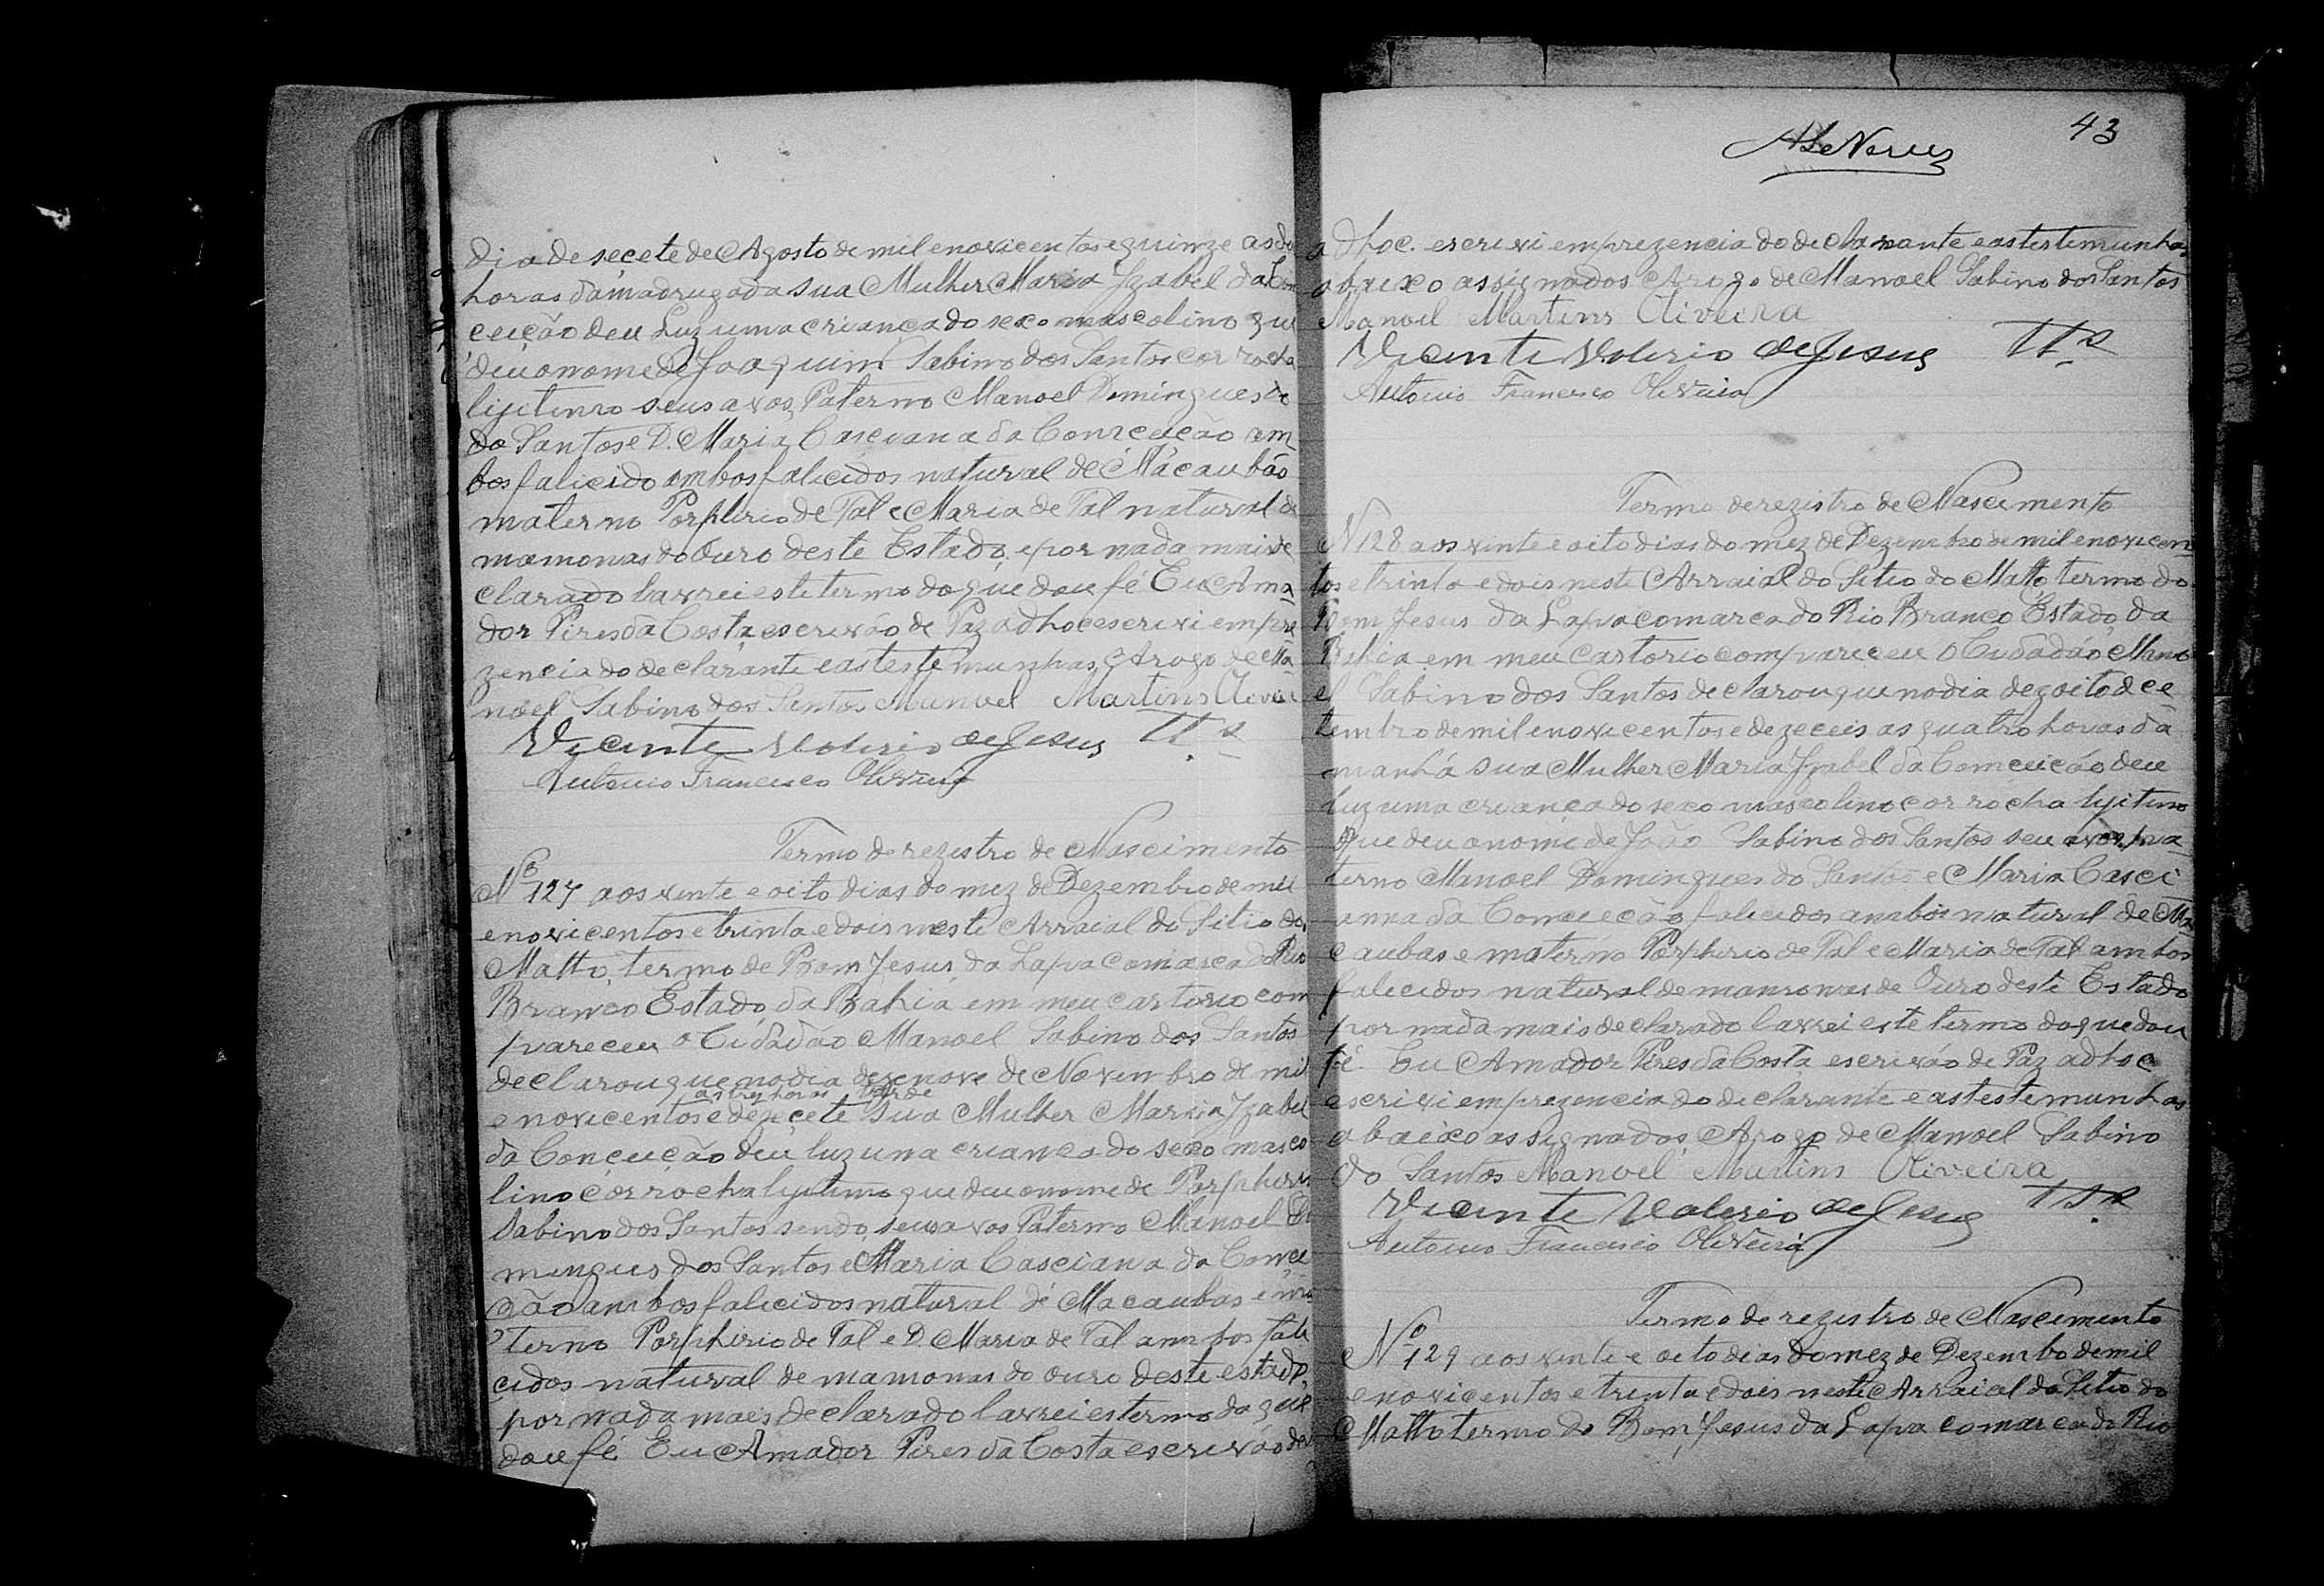 dia de seçete de Agosto de mil enovicentos equinze as du
horas da madrugada sua Mulher Maria Izabel da Con
ceição deu Luz uma criança do sexo mascolino que
deu o nome de Joaquim Sabino dos Santos cor rocha
ligitimo seus avos Paterno Manoel Domingues de
do Santos e D. Maria Casciana da Conceição am
bos falicido ambos falicidos natural de Macaubas
materno Porphirio de Tal e Maria de Tal natural de
mamonas do Ouro deste Estado, e por nada mais de
clarado lavrei este termo do que dou fé Eu Ama
dor Pires da Costa escrivão de Paz adhoc escrivi em pre
zencia do declarante e as testemunhas, Arogo de Ma
noel Sabino dos Santos Manoel Martins Oliveir
Vicente Valerio de Jesus TTs
Antonio Francisco Oliveira
Termo de rezistro de Nascimento
No 127 aos vinte e oito dias do mez de Dezembro de mil
enovicentos e trinta e dois neste Arraial do Sitio do
Matto, termo de Bom Jesus da Lapa comarca do Rio
Branco Estado da Bahia em meu cartorio com
pareceu o Cidadão Manoel Sabino dos Santos
declarou que no dia dezenove de Novembro de mil
as trez horas tarde
enovicentos e dezeçete sua Mulher Maria Izabel
da Conceição deu luz uma criança do sexo masco
lino cor rocha lijitimo que deu o nome de Porphirio
Sabino dos Santos sendo seus avos Paterno Manoel Do
mingues dos Santos e Maria Casciana da Concei
ção ambos falicidos natural de Macaubas e ma
terno Porphirio de Tal e D. Maria de Tal ambos fali
cidos natural de mamonas do ouro deste estado,
por nada mais declarado lavrei es termo do que
dou fé Eu Amador Pires da Costa escrivão de
43
adhoc. escrivi em prezencia do declarante e as testemunhas
abaixo assignados Arogo de Manoel Sabino dos Santos
Manoel Martins Oliveira
Vicente Valerio de Jesus TTs
Antonio Francisco Oliveira
Termo de rezistro de Nascimento
N 128 aos vinte e oito dias do mez de Dezembro de mil enovicen
tos e trinta e dois neste Arraial do Sitio do Matto termo do
Bom Jesus da Lapa comarca do Rio Branco Estado da
Bahia em meu cartorio compareceu o Cidadão Mano
el Sabino dos Santos declarou que no dia dezoito de ce
tembro de mil enovicentos e dezeceis as quatro horas da
manhã sua Mulher Maria Izabel da Comceição deu
luz uma criança do sexo mascolino cor rocha lijitimo
que deu o nome de João Sabino dos Santos seu avos pa
terno Manoel Domingues do Santos e Maria Casci
anna da Conceição falicidos ambos natural de Ma
caubas e materno Porphirio de Tal e Maria de Tal ambos
falicidos natural de mamonas de Ouro deste Estado
por nada mais declarado lavrei este termo do que dou
fé. Eu Amador Pires da Costa escrivão de Paz adhoc
escrivi em prezencia do declarante e as testemunhas
abaixo assignados, Arogo de Manoel Sabino
do Santos Manoel Martins Oliveira
Vicente Valerio de Jesus TTs
Antonio Francisco Oliveira
Termo de rezistro de Nascimento
No 129 aos vinte e oito dias do mez de Dezembo de mil
enovicentos e trinta e dois neste Arraial do Sitio do
Matto termo do Bom Jesus da Lapa comarca do Rio